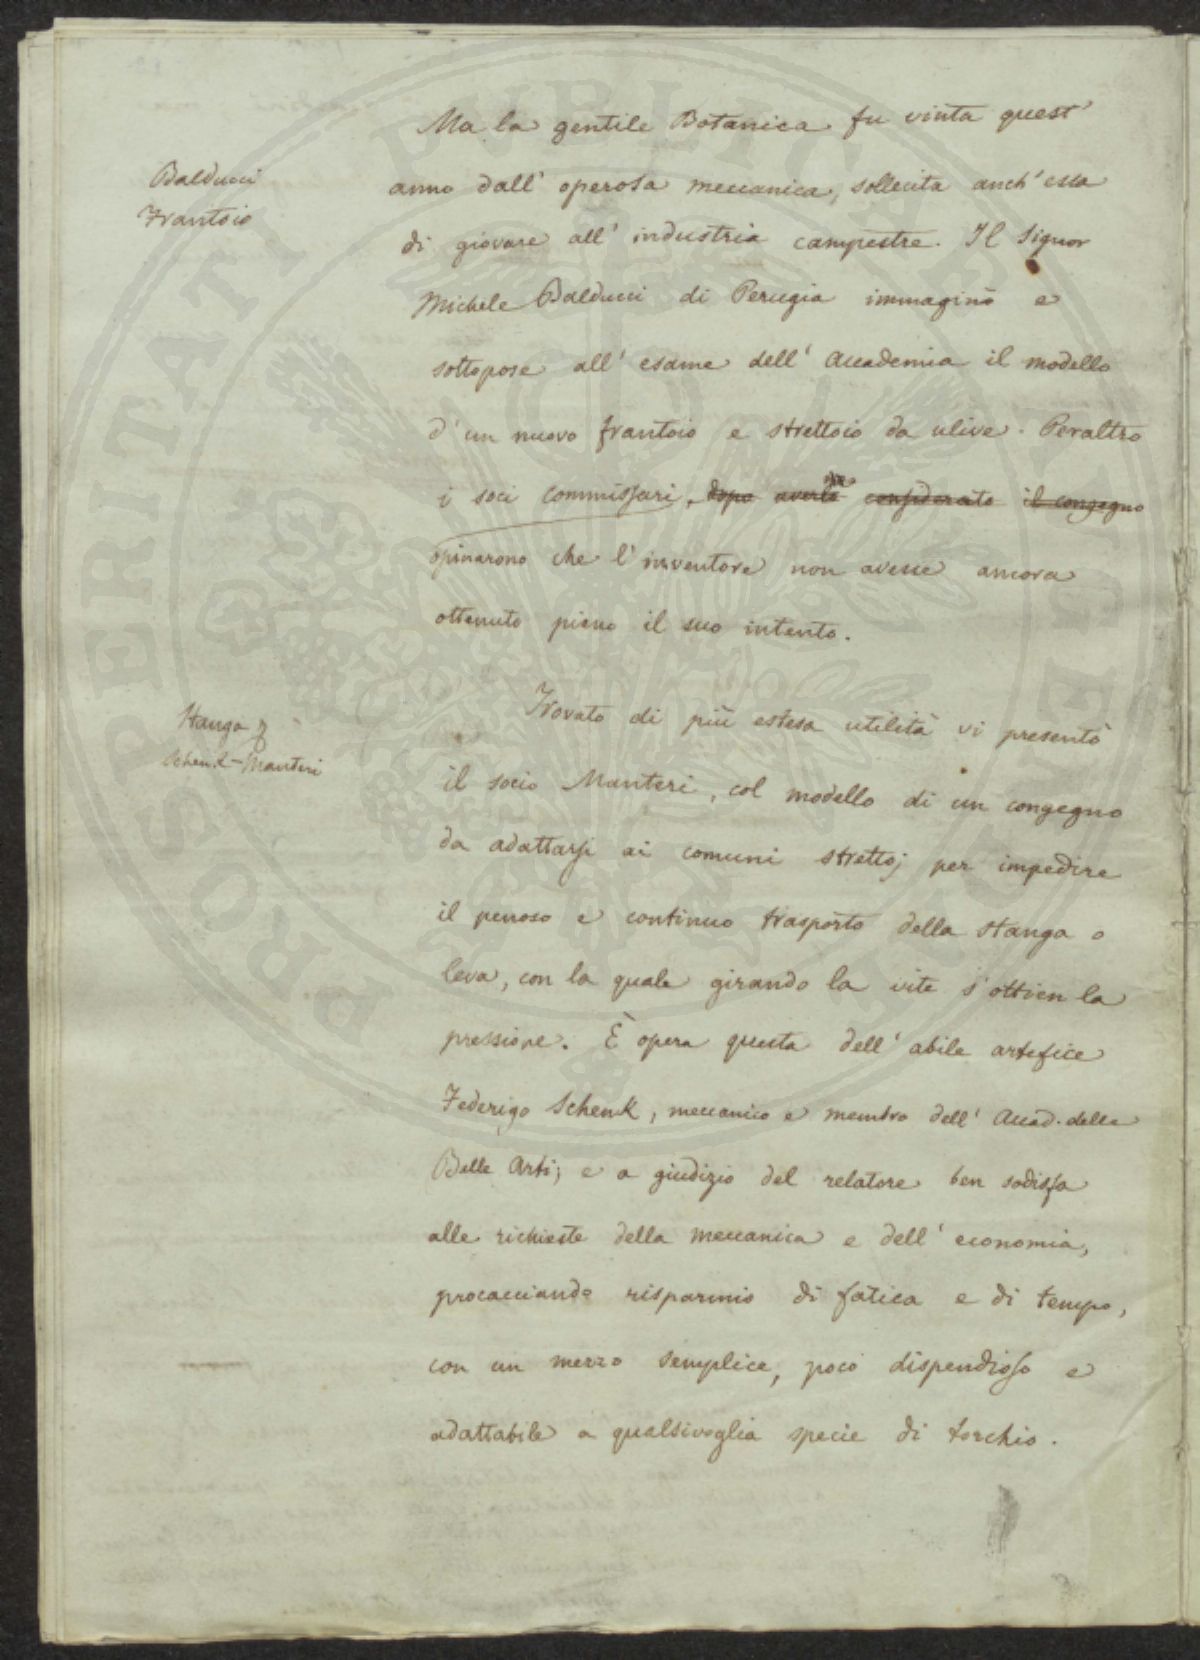 Ma la gentile Botanica fu vinta quest'
Balducci
Frantoio
anno dall' operosa meccanica, sollecita anch' essa
di giovare all' industria campestre. Il Signor
Michele Balducci di Perugia immaginò e
sottopose all' esame dell' Accademia il modello
d' un nuovo frantoio e strettoio da ulive. Peraltro
i soci commissari, dopo averne considerato il congegno
opinarono che l' inventore non avesse ancora
ottenuto pieno il suo intento.
Stanga
Schenk-Manteri
Trovato di più estesa utilità vi presentò
il socio Manteri, col modello di un congegno
da adattarsi ai comuni strettoj per impedire
il penoso e continuo trasporto della stanga o
leva, con la quale girando la vite s' ottien la
pressione. È opera questa dell' abile artefice
Federigo Schenk, meccanico e membro dell' Accad. delle
Belle Arti; e a giudizio del relatore ben sodisfa
alle richieste della meccanica e dell' economia,
procacciando risparmio di fatica e di tempo,
con un mezzo semplice, poco dispendioso e
adattabile a qualsivoglia specie di torchio.
PROSPERITATI PUBLICAE AUGENDAE